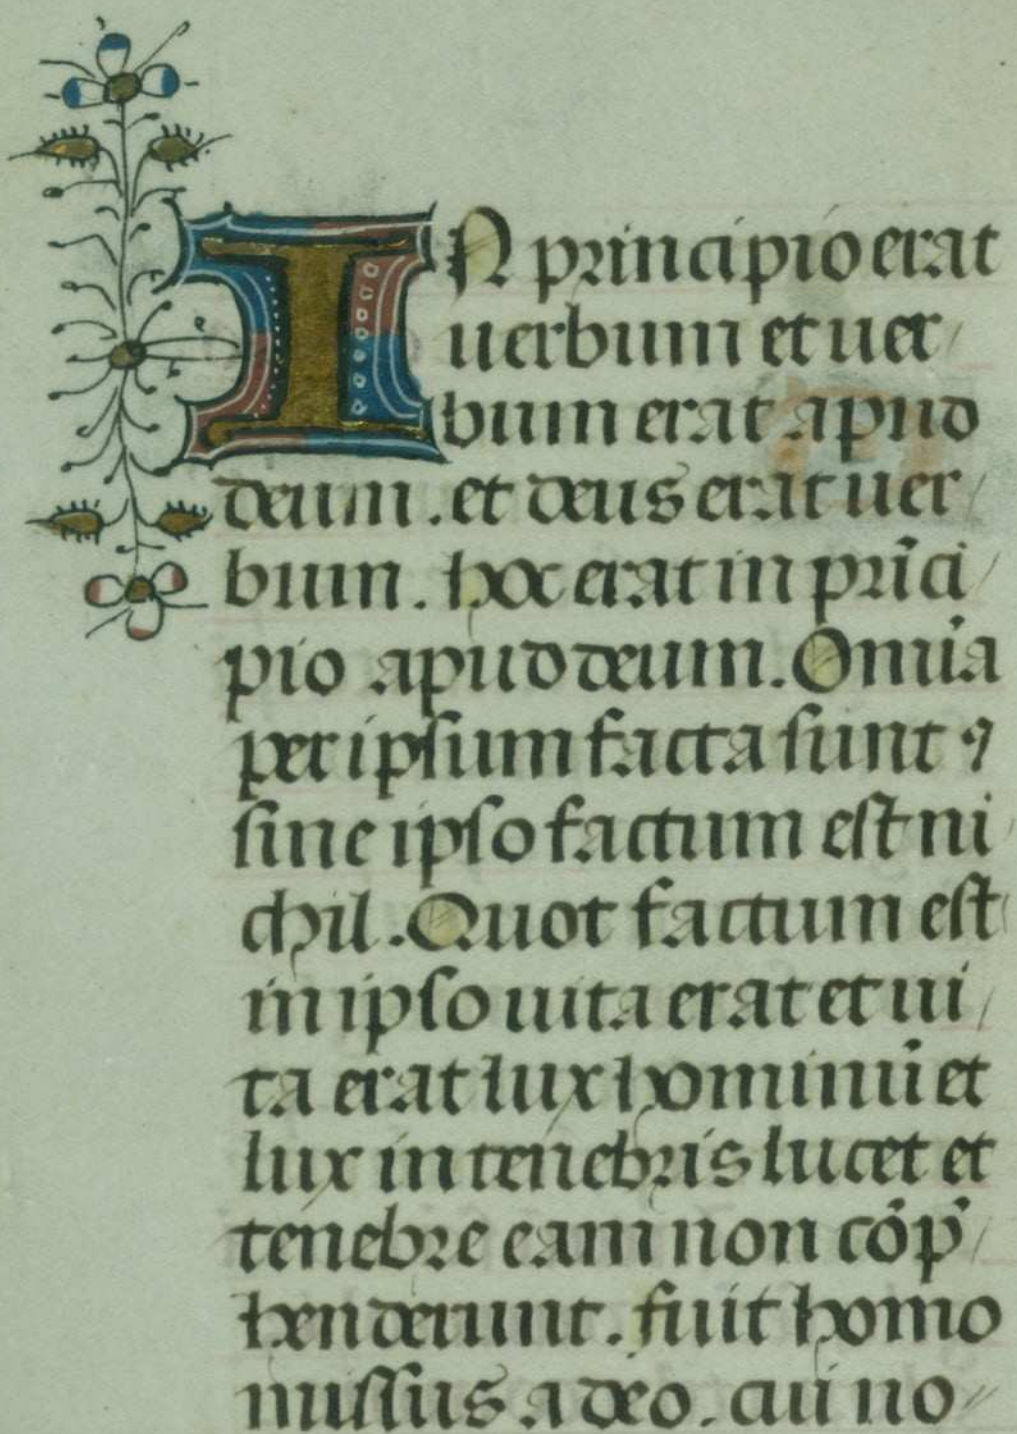 IN principio erat
uerbum et uer/
bum erat apud
deum. et deus erat uer/
bum. hoc erat in prīci/
pio apud deum. Omīa
per ipsum facta sunt ⁊
sine ipso factum est ni/
chil. Quot factum est
in ipso uita erat et ui/
ta erat lux hominū et
lux in tenebris lucet et
tenebre eam non cōp̄/
henderunt. fuit homo
missus a deo. cui no//